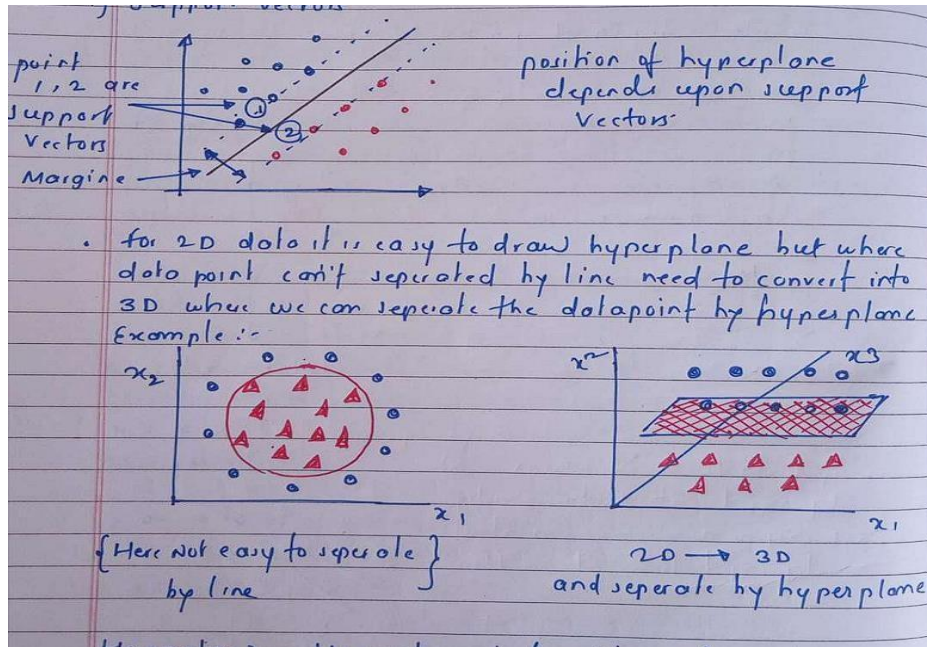 Support vectors
point
1, 2 are
support
vectors
Margine
1
2
position of hyperplane
depends upon support
vectors.
. for 2D data it is easy to draw hyperplane but where
data point can't seperated by line need to convert into
3D where we can seperate the datapoint by hyperplane
Example :-
x2
x1
{Here Not easy to seperate}
by line
x2
x3
x1
2D → 3D
and seperate by hyperplane